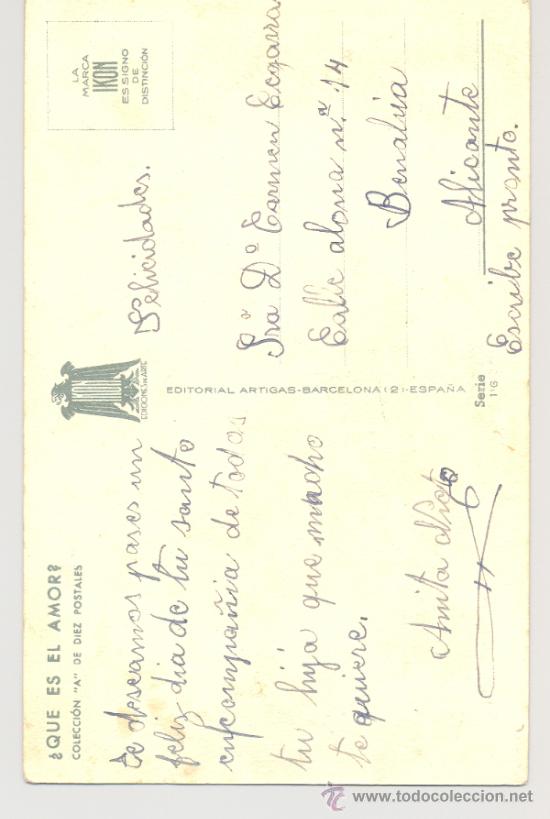 ¿QUE ES EL AMOR?
COLECCIÓN "A" DE DIEZ POSTALES
Te deseamos pases un
feliz dia de tu santo
encompañia de todos
tu hija que macho
te quiere.
Anita
EDICIONES DE ARTE
EDITORIAL ARTIGAS-BARCELONA (2)-ESPAÑA
Serie
1 G
LA
MARCA
IKON
ES SIGNO
DE
DISTINCIÓN
Felicidades.
Sra Dª Carmen
Calle alona n.º 14
Benalua
Alicante
Escribe pronto.
www.todocoleccion.net